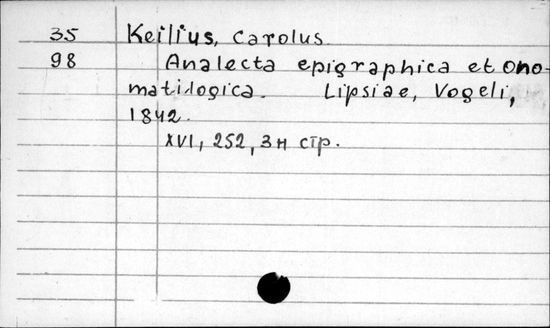 35 Keilius, Carolus
98 Analecta epigraphica et ono-
matilogica. Lipsiae, Vogeli,
1842.
XVI, 252, 3н стр.